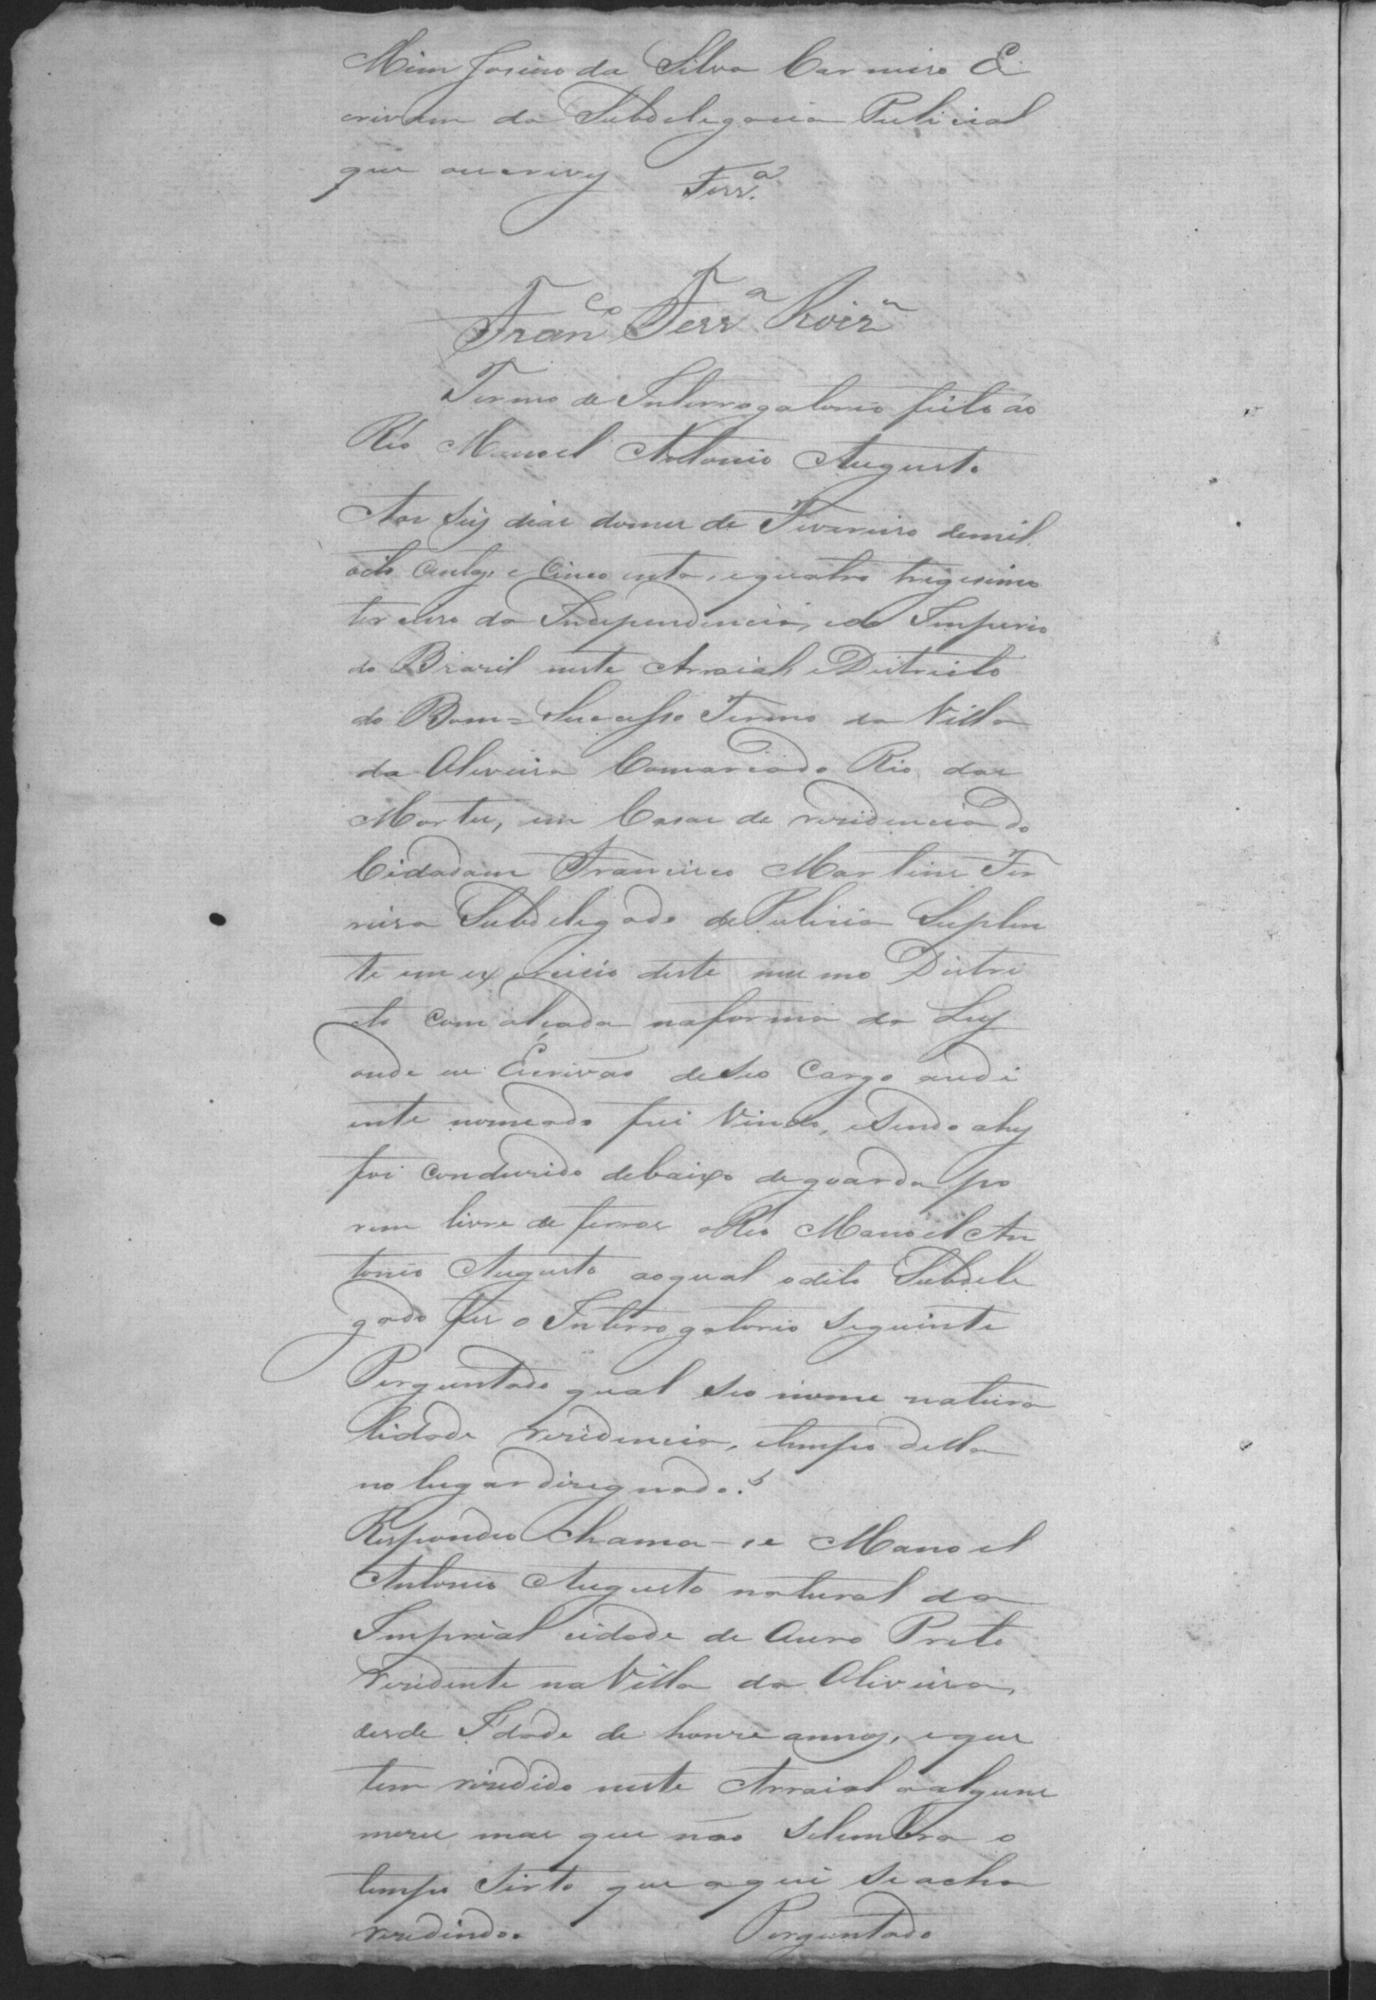 Mim Josino da Silva Carneiro Es
crivam da Subdelegacia Pulicial
que oescrevy Ferr.ª
Fran.co Ferr.ª Roiz
Termo de Interrogatorio feito ao
Réo Manoel Antonio Augusto
Aos seis dias domes de Fevereiro demil
oito centos e Cincoenta, equatro trigesimo
terceiro da Independencia, edo Imperio
do Brazil neste Arraial, e Districto
do Bom=Sucesso Termo da Villa
da Oliveira Comarca do Rio das
Mortes, em Casas de rezidencia do
Cidadam Francisco Martins Fer
reira Subdelegado de Pulicia Suplen
te em exercicio deste mesmo Distri
cto com alçada naforma da Ley
onde eu Escrivão deseo Cargo andi
ante nomeado fui Vindo, esendo ahy
foi Conduzido debaixo de guarda po
rem livre de ferros oRéo Manoel An
tonio Augusto aoqual odito Subdele
gado fes o Interrogatorio Seguinte
Perguntado qual seo nome natura
lidade rezidencia, etempo della
no lugar dizegnado?
Respondeo Chama-se Manoel
Antonio Augusto natural da
Imprial cidade de Ouro Preto
rezidente na Villa da Oliveira,
desde Idade de honze annos, eque
tem rezedido neste Arraial a alguns
mezes mas que não selembra o
tempo Serto que aqui Seacha
rezedindo. Perguntado